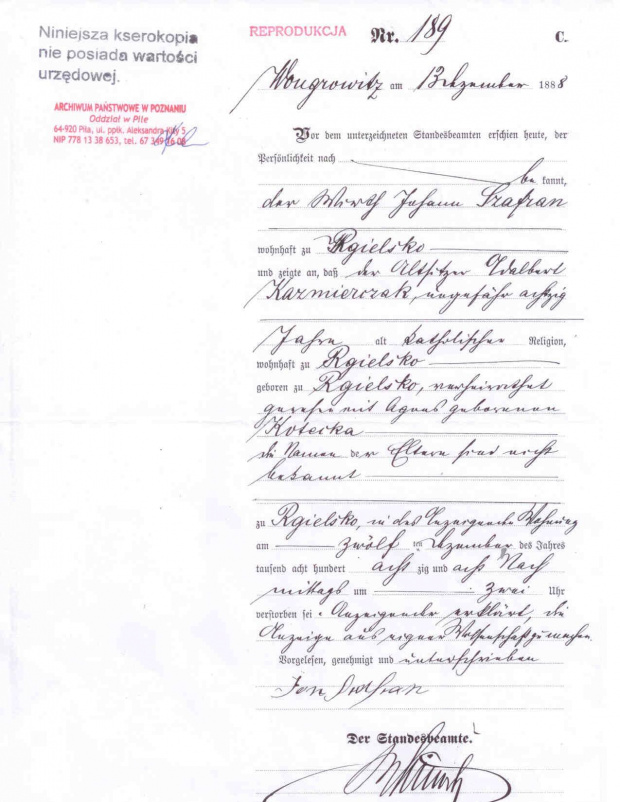 Niniejsza kserokopia
nie posiada wartości
urzędowej.
REPRODUKCJA
Nr. 189
C.
ARCHIWUM PAŃSTWOWE W POZNANIU
Oddział w Pile
64-920 Piła, ul. ppłk. Aleksandra Kity 5
NIP 778 13 38 653, tel. 67 349 16 08
Wongrowitz am 13 Dezember 1888
Vor dem unterzeichneten Standesbeamten erschien heute, der
Persönlichkeit nach
be kannt,
der Wirth Johann Szafran
wohnhaft zu Rgielsko
und zeigte an, daß der Altsitzer Adalbert
Kazmierczak, ungefähr achtzig
Jahre alt katholischer Religion,
wohnhaft zu Rgielsko
geboren zu Rgielsko, verheirathet
gewesen mit Agnes geborenen
Kotecka
die Namen der Eltern sind nicht
bekannt
zu Rgielsko, in des Anzeigenden Wohnung
am zwölf ten Dezember des Jahres
tausend acht hundert acht zig und acht Nach
mittags um zwei Uhr
verstorben sei. Anzeigender erklärt, die
Anzeige aus eigner Wissenschaft zu machen.
Vorgelesen, genehmigt und unterschrieben
Jan
Der Standesbeamte.